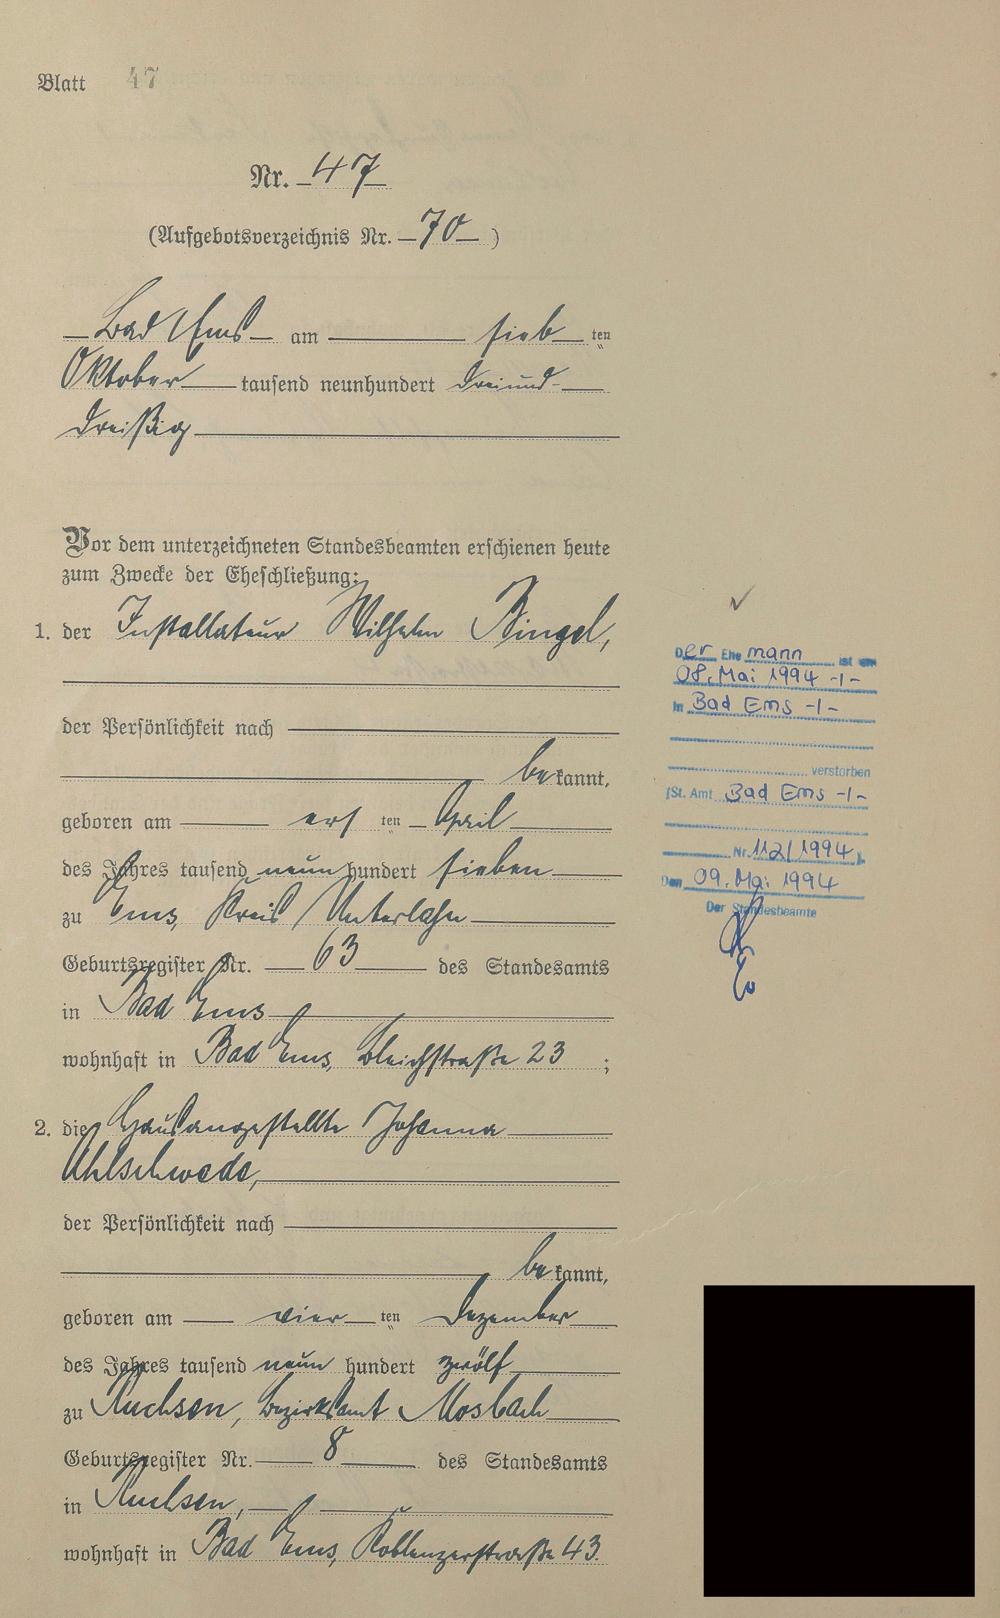 Blatt 47
Nr. 47
(Aufgebotsverzeichnis Nr. 70 )
Bad Ems am sieb ten
Oktober tausend neunhundert dreiund-
dreißig
Vor dem unterzeichneten Standesbeamten erschienen heute
zum Zwecke der Eheschließung:
1. der Installateur Wilhelm Bingel,
der Persönlichkeit nach
bekannt,
geboren am erf ten April
des Jahres tausend neun hundert sieben
zu Ems, Kreis Unterlahn
Geburtsregister Nr. 63 des Standesamts
in Bad Ems
wohnhaft in Bad Ems, Bleichstraße 23 ;
2. die Hausangestellte Johanna
Uhlschwede,
der Persönlichkeit nach
bekannt,
geboren am vier ten Dezember
des Jahres tausend neun hundert zwölf
zu Ruchsen, Bezirksamt Mosbach
Geburtsregister Nr. 8 des Standesamts
in Ruchsen,
wohnhaft in Bad Ems, Koblenzerstraße 43.
Der Ehe mann ist am
08. Mai 1994 -/-
in Bad Ems -/-
verstorben
(St. Amt Bad Ems -/-
Nr. 112/1994 ).
Den 09. Mai 1994
Der Standesbeamte